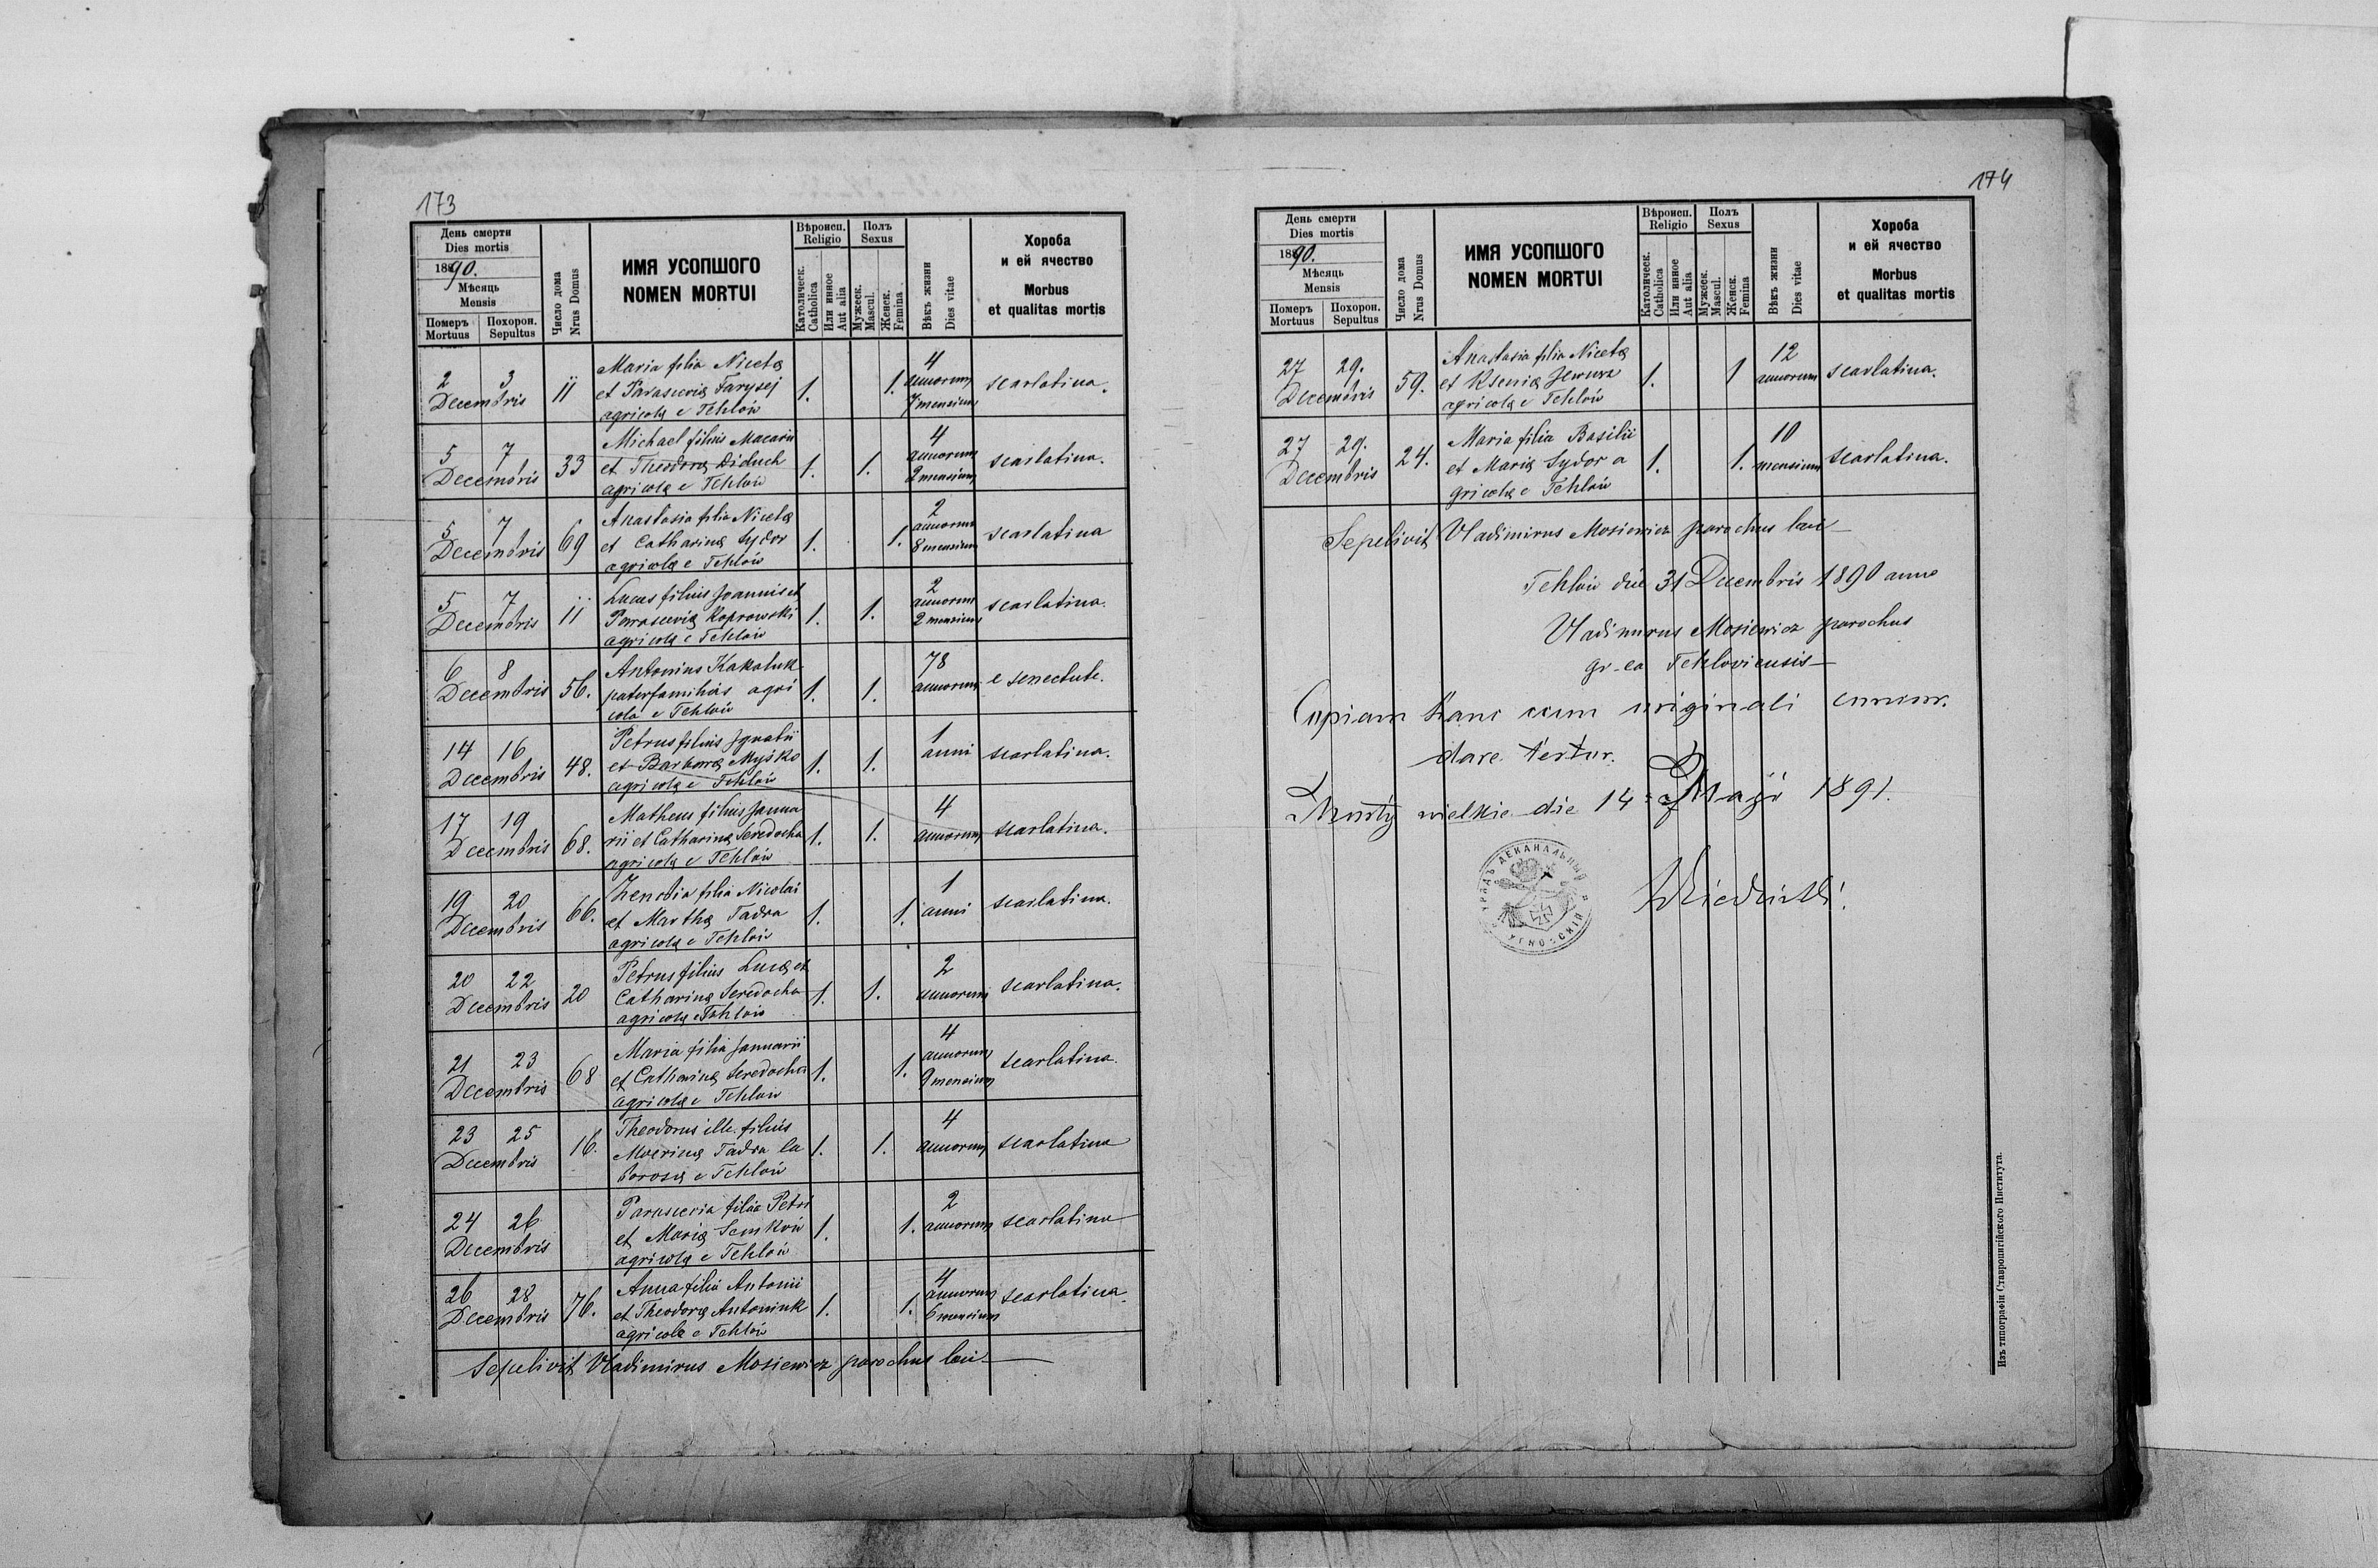 173
День смерти
Dies mortis
1890.
Мѣсяць
Mensis
Померъ
Mortuus
Похорон.
Sepultus
Число дома
Nrus Domus
ИМЯ УСОПШОГО
NOMEN MORTUI
Вѣроисп.
Religio
Католическ.
Catholica
Или инное
Aut alia
Полъ
Sexus
Мужеск.
Mascul.
Женск.
Femina
Вѣкъ жизни
Dies vitae
Хороба
и ей ячество
Morbus
et qualitas mortis
2 3
Decembris
11
Maria filia Nicetæ
et Parasceviæ Farysej
agricolæ e Tehlów
1. 1.
4
annorum
7 mensium
scarlatina.
5 7
Decembris
33
Michael filius Macarii
et Theodoræ Diduch
agricolæ e Tehlów
1. 1.
4
annorum
2 mensium
scarlatina.
5 7
Decembris
69
Anastasia filia Nicetæ
et Catharinæ Sydor
agricolæ e Tehlów
1. 1.
2
annorum
8 mensium
scarlatina
5 7
Decembris
11
Lucas filius Joannis et
Parasceviæ Koprowski
agricolæ e Tehlów
1. 1.
2
annorum
2 mensium
scarlatina.
6 8
Decembris
56.
Antonius Kakaluk
paterfamilias agri
cola e Tehlów
1. 1.
78
annorum
e senectute.
14 16
Decembris
48.
Petrus filius Ignatii
et Barbaræ Myśko
agricolæ e Tehlów
1. 1.
1
anni
scarlatina.
17 19
Decembris
68.
Matheus filius Janua
rii et Catharinæ Seredocha
agricolæ e Tehlów
1. 1.
4
annorum
scarlatina.
19 20
Decembris
66.
Zenobia filia Nicolai
et Marthæ Tadra
agricolæ e Tehlów
1. 1.
1
anni
scarlatina.
20 22
Decembris
20
Petrus filius Lucæ et
Catharinæ Seredocha
agricolæ e Tehlów
1. 1.
2
annorum
scarlatina.
21 23
Decembris
68
Maria filia Januarii
et Catharinæ Seredocha
agricolæ e Tehlów
1. 1.
4
annorum
9 mensium
scarlatina.
23 25
Decembris
16.
Theodorus ille. filius
Tadra la
borosæ e Tehlów
1. 1.
4
annorum
scarlatina
24 26
Decembris
Parascevia filia Petri
et Mariæ Semków
agricolæ e Tehlów
1. 1.
2
annorum
scarlatina
26 28
Decembris
76.
Anna filia Antonii
et Theodoræ Antoniuk
agricolæ e Tehlów
1. 1.
4
annorum
6 mensium
scarlatina.
Sepelivit Vladimirus Mosiewicz parochus loci
174
День смерти
Dies mortis
1890.
Мѣсяць
Mensis
Померъ
Mortuus
Похорон.
Sepultus
Число дома
Nrus Domus
ИМЯ УСОПШОГО
NOMEN MORTUI
Вѣроисп.
Religio
Католическ.
Catholica
Или инное
Aut alia
Полъ
Sexus
Мужеск.
Mascul.
Женск.
Femina
Вѣкъ жизни
Dies vitae
Хороба
и ей ячество
Morbus
et qualitas mortis
27 29.
Decembris
59.
Anastasia filia Nicetæ
et Kseniæ
agricolæ e Tehlów
1. 1
12
annorum
scarlatina.
27 29.
Decembris
24.
Maria filia Basilii
et Mariæ Sydor a
gricolæ e Tehlów
1. 1.
10
mensium
scarlatina.
Sepelivit Vladimirus Mosiewicz parochus loci
Tehlów die 31 Decembris 1890 anno
Vladimirus Mosiewicz parochus
gr-ca Tehloviensis
Copiam hanc cum originali concor
dare testor.
wielkie die 14 Maji 1891.
ДЕКАНАЛЬНЫЙ
УГНОВСКІЙ
Изъ типографіи Ставропигійского Института.